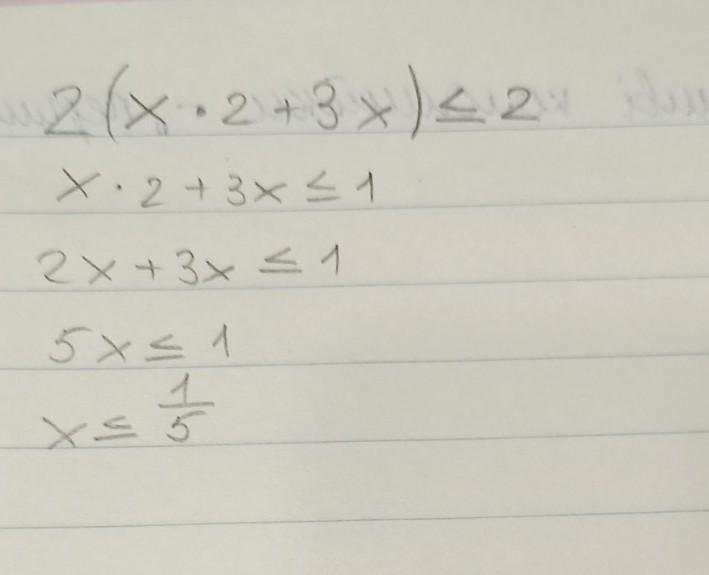 2(x·2+3x)≤2
x·2+3x≤1
2x+3x≤1
5x≤1
x≤1/5